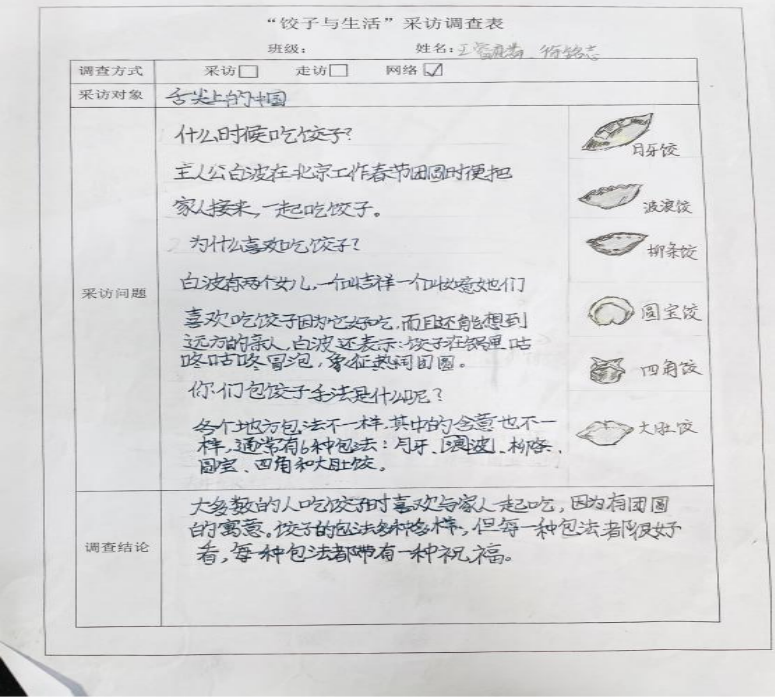 “饺子与生活”采访调查表
班级： 姓名：
调查方式 采访□ 走访□ 网络☑
采访对象 舌尖上的中国
采访问题
什么时候吃饺子？
主人公白波在北京工作春节团圆时便把
家人接来，一起吃饺子。
为什么喜欢吃饺子？
白波有两个女儿，一个叫吉祥一个叫如意她们
喜欢吃饺子因为它好吃，而且还能想到
远方的亲人，白波还表示：饺子在锅里咕
咚咕咚冒泡，象征热闹团圆。
你们包饺子手法是什么呢？
各个地方包法不一样，其中的含意也不一
样，通常有6种包法：月牙、波浪、柳条、
圆宝、四角和大肚饺。
月牙饺
波浪饺
柳条饺
圆宝饺
四角饺
大肚饺
调查结论
大多数的人吃饺子时喜欢与家人一起吃，因为有团圆
的寓意。饺子的包法多种多样，但每一种包法都很好
看，每一种包法都带有一种祝福。